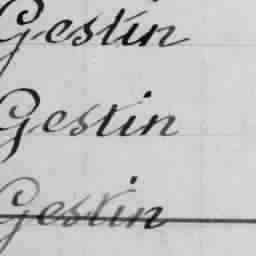 Gestin
Gestin
Gestin